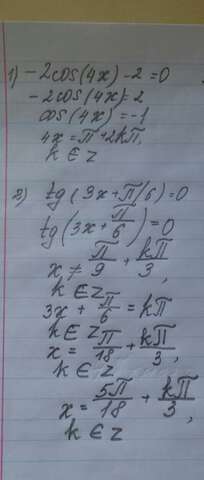 1) -2cos(4x)-2=0
-2cos(4x)=2
cos(4x)=-1
4x=π+2kπ,
k ∈ z
2) tg(3x+π/6)=0
tg(3x+π/6)=0
x≠π/9+kπ/3,
k ∈ z
3x+π/6=kπ
k ∈ z
x=π/18+kπ/3,
k ∈ z
x=5π/18+kπ/3,
k ∈ z